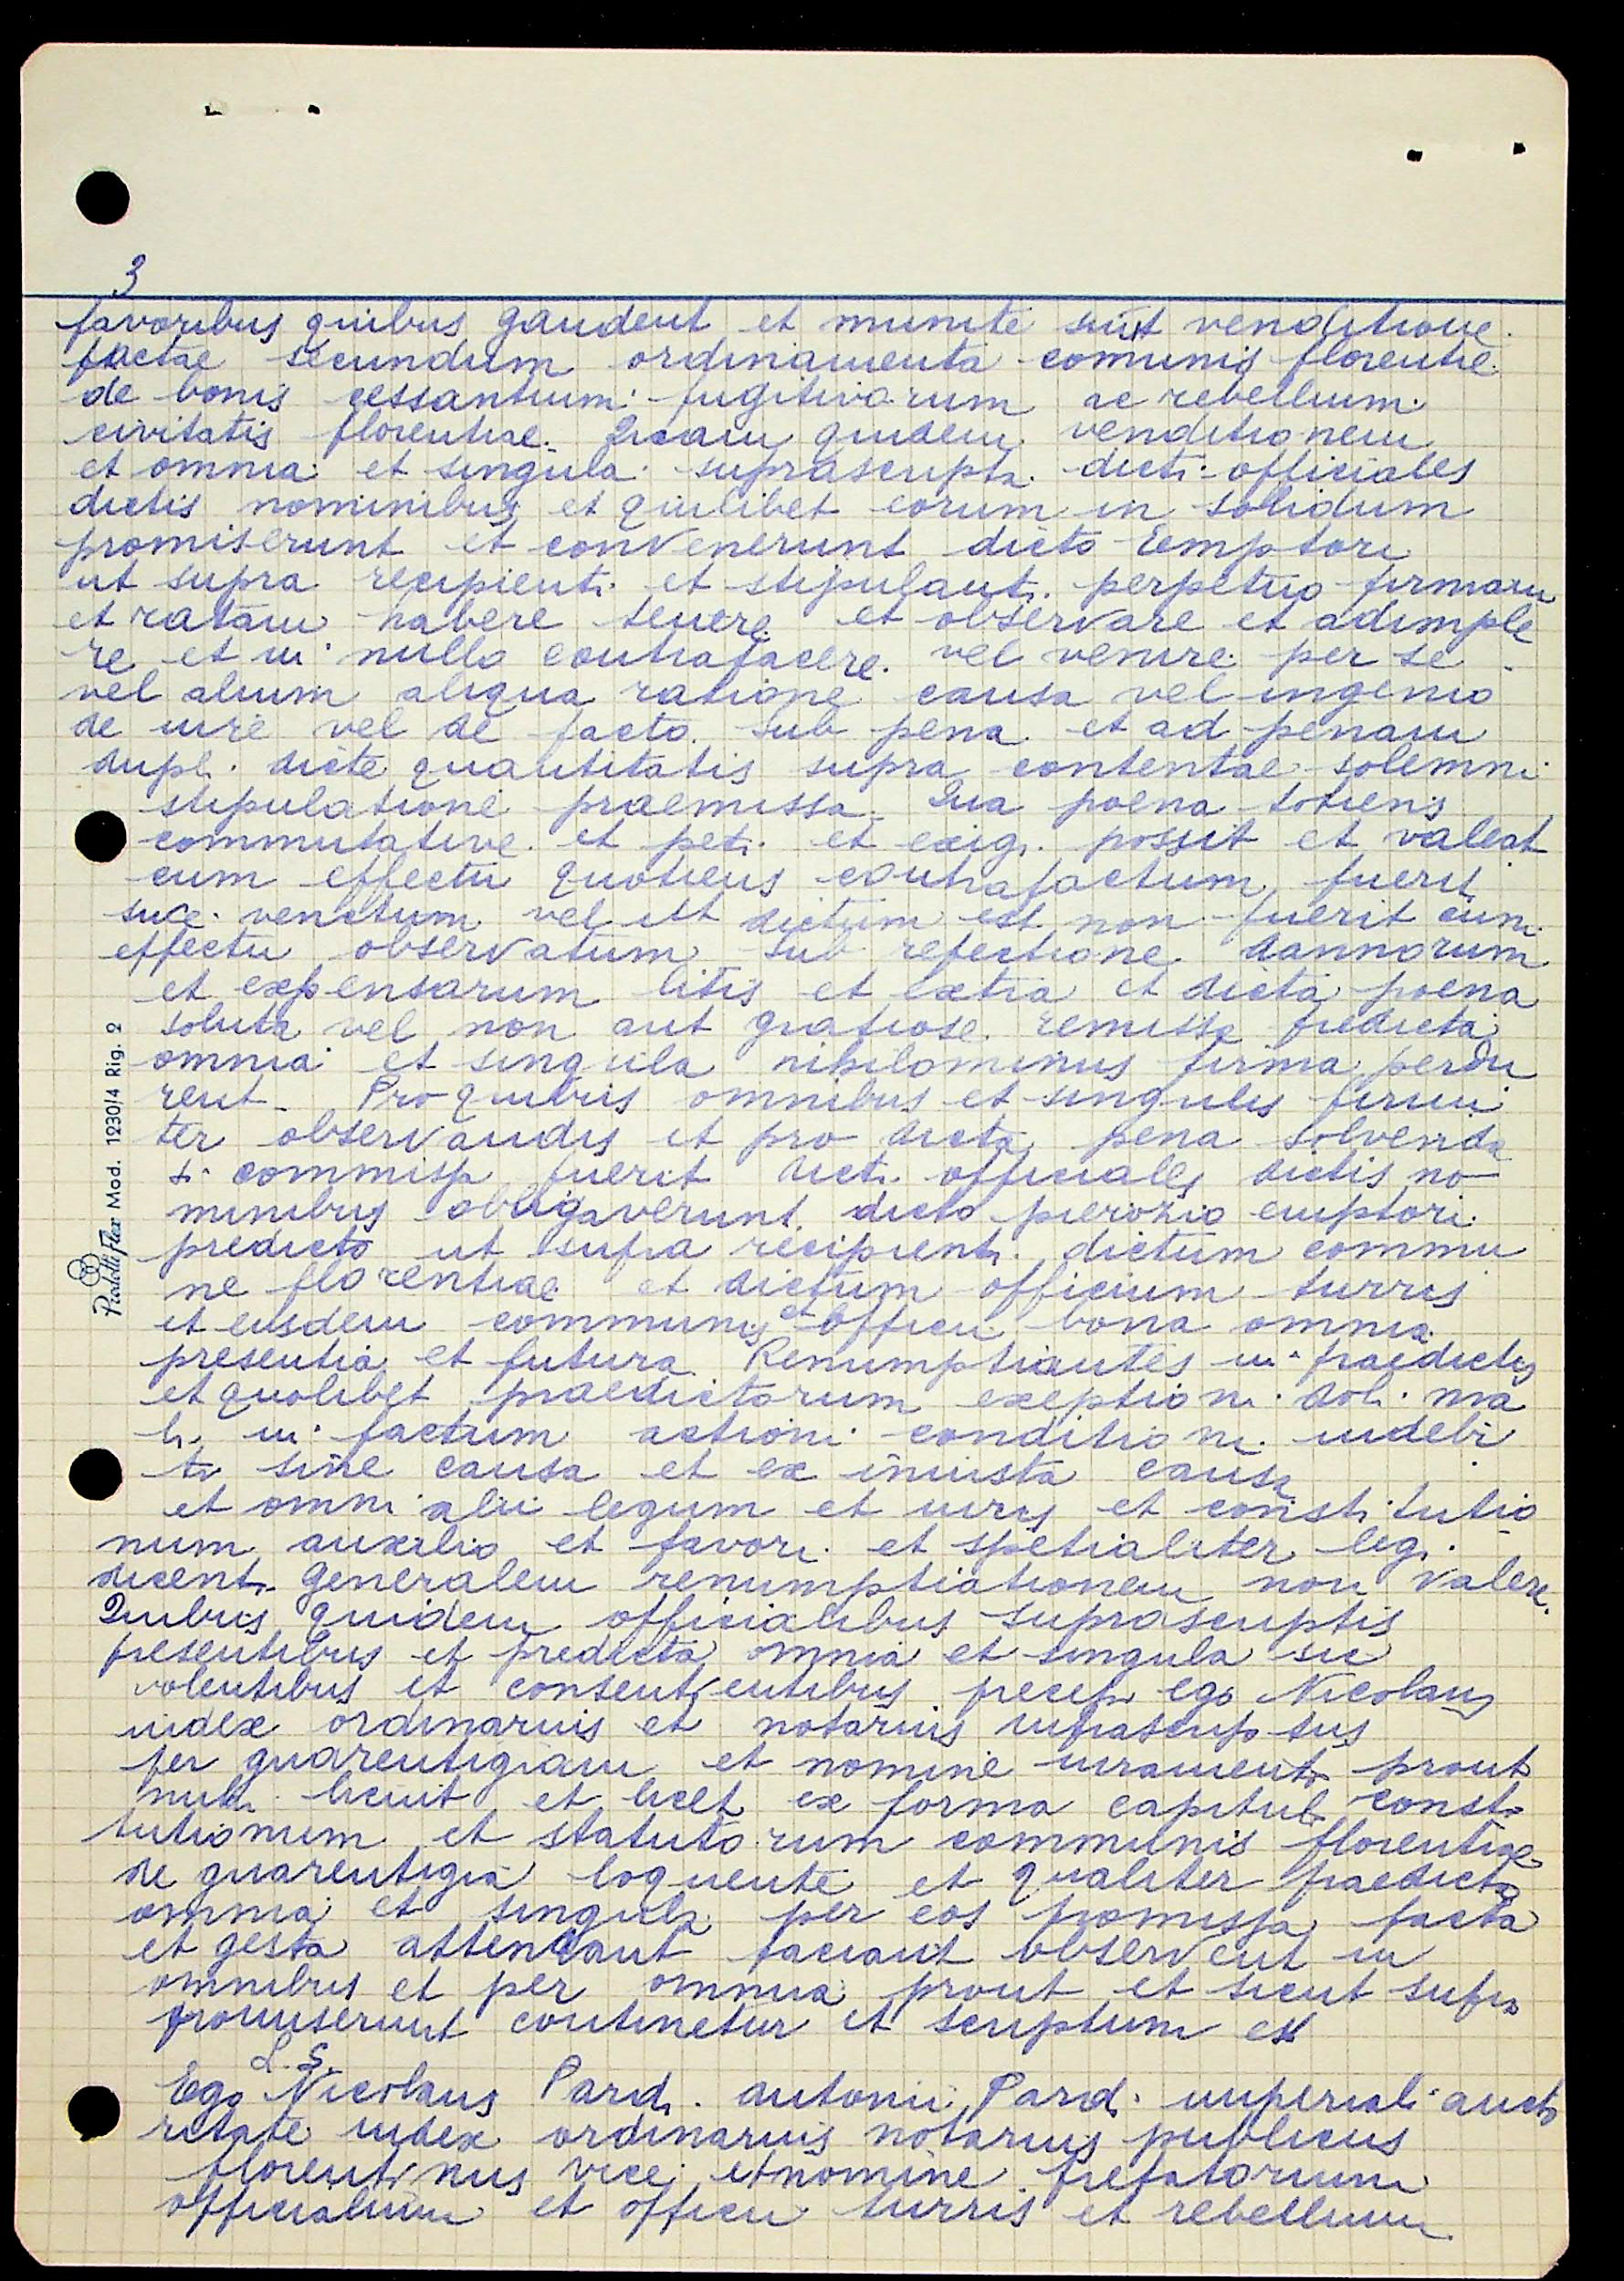 3
favoribus quibus gaudent et munite sunt venditione
factae secundum ordinamenta comunis florentie
de bonis cessantium fugitivorum ac rebellium
civitatis florentiae. Quam quidem venditionem
et omnia et singula suprascripta dicti officiales
dictis nominibus et quilibet eorum in solidum
promiserunt et convenerunt dicto Emptori
ut supra recipienti et stipulanti perpetuo firmam
et ratam habere tenere et observare et adimple
re et in nullo contrafacere vel venire per se
vel alium aliqua ratione causa vel ingenio
de iure vel de facto sub pena et ad penam
dupli dicte quantitatis supra contentae solemni
stipulatione praemissa. Qua poena totiens
commutative et peti et exigi possit et valeat
cum effectu quotiens contrafactum fuerit
sive ventum vel ut dictum est non fuerit cum
effectu observatum sub refectione dannorum
et expensarum litis et extra et dicta poena
soluta vel non aut gratiose remissa predicta
omnia et singula nihilominus firma perdu
rent. Pro quibus omnibus et singulis firmi
ter observandis et pro dicta pena solvenda
si commissa fuerit dicti officiales dictis no
minibus obligaverunt dicto pierozio emptori
predicto ut supra recipienti dictum commu
ne florentiae et dictum officium turris
et eiusdem communis et officii bona omnia
presentia et futura Renumptiantes in praedictis
et quolibet praedictorum exeptioni doli ma
li, in factum actioni conditioni indebi
ti sine causa et ex iniusta causa
et omni alii legum et iuris et constitutio
num auxilio et favori et spetialiter legi
dicenti generalem renumptiationem non valere.
Quibus quidem officialibus suprascriptis
presentibus et predicta omnia et singula sic
volentibus et consentientibus precepi ego Nicolaus
iudex ordinarius et notarius infrascriptus
per guarentigiam et nomine iuramenti prout
mihi licuit et licet ex forma capituli consti
tutionum et statutorum communis florentiae
de guarentigia loquente et qualiter praedicta
omnia et singula per eos promissa facta
et gesta attendant faciant observent in
omnibus et per omnia prout et sicut supra
promiserunt continetur et scriptum est
L. S.
Ego Nicolaus Pardi antonii Pardi imperiali aucto
ritate iudex ordinarius notarius publicus
florentinus vice et nomine prefatorum
officialium et officii turris et rebellium
Pratelli Flex Mod. 1230/4 Rig. 2